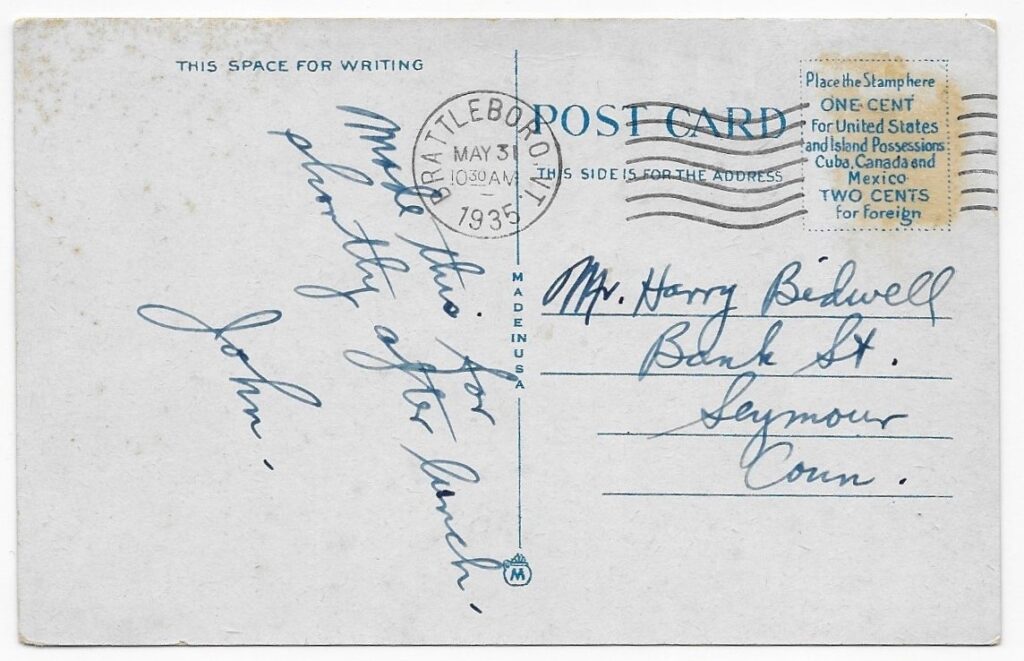 THIS SPACE FOR WRITING
Made this for
shortly after lunch.
John.
BRATTLEBORO, VT.
MAY 31
10 30 AM
1935
POST CARD
THIS SIDE IS FOR THE ADDRESS
Place the Stamp here
ONE CENT
For United States
and Island Possessions
Cuba, Canada and
Mexico
TWO CENTS
for Foreign
MADE IN USA
Mr. Harry Bidwell
Bank St.
Seymour
Conn.
M